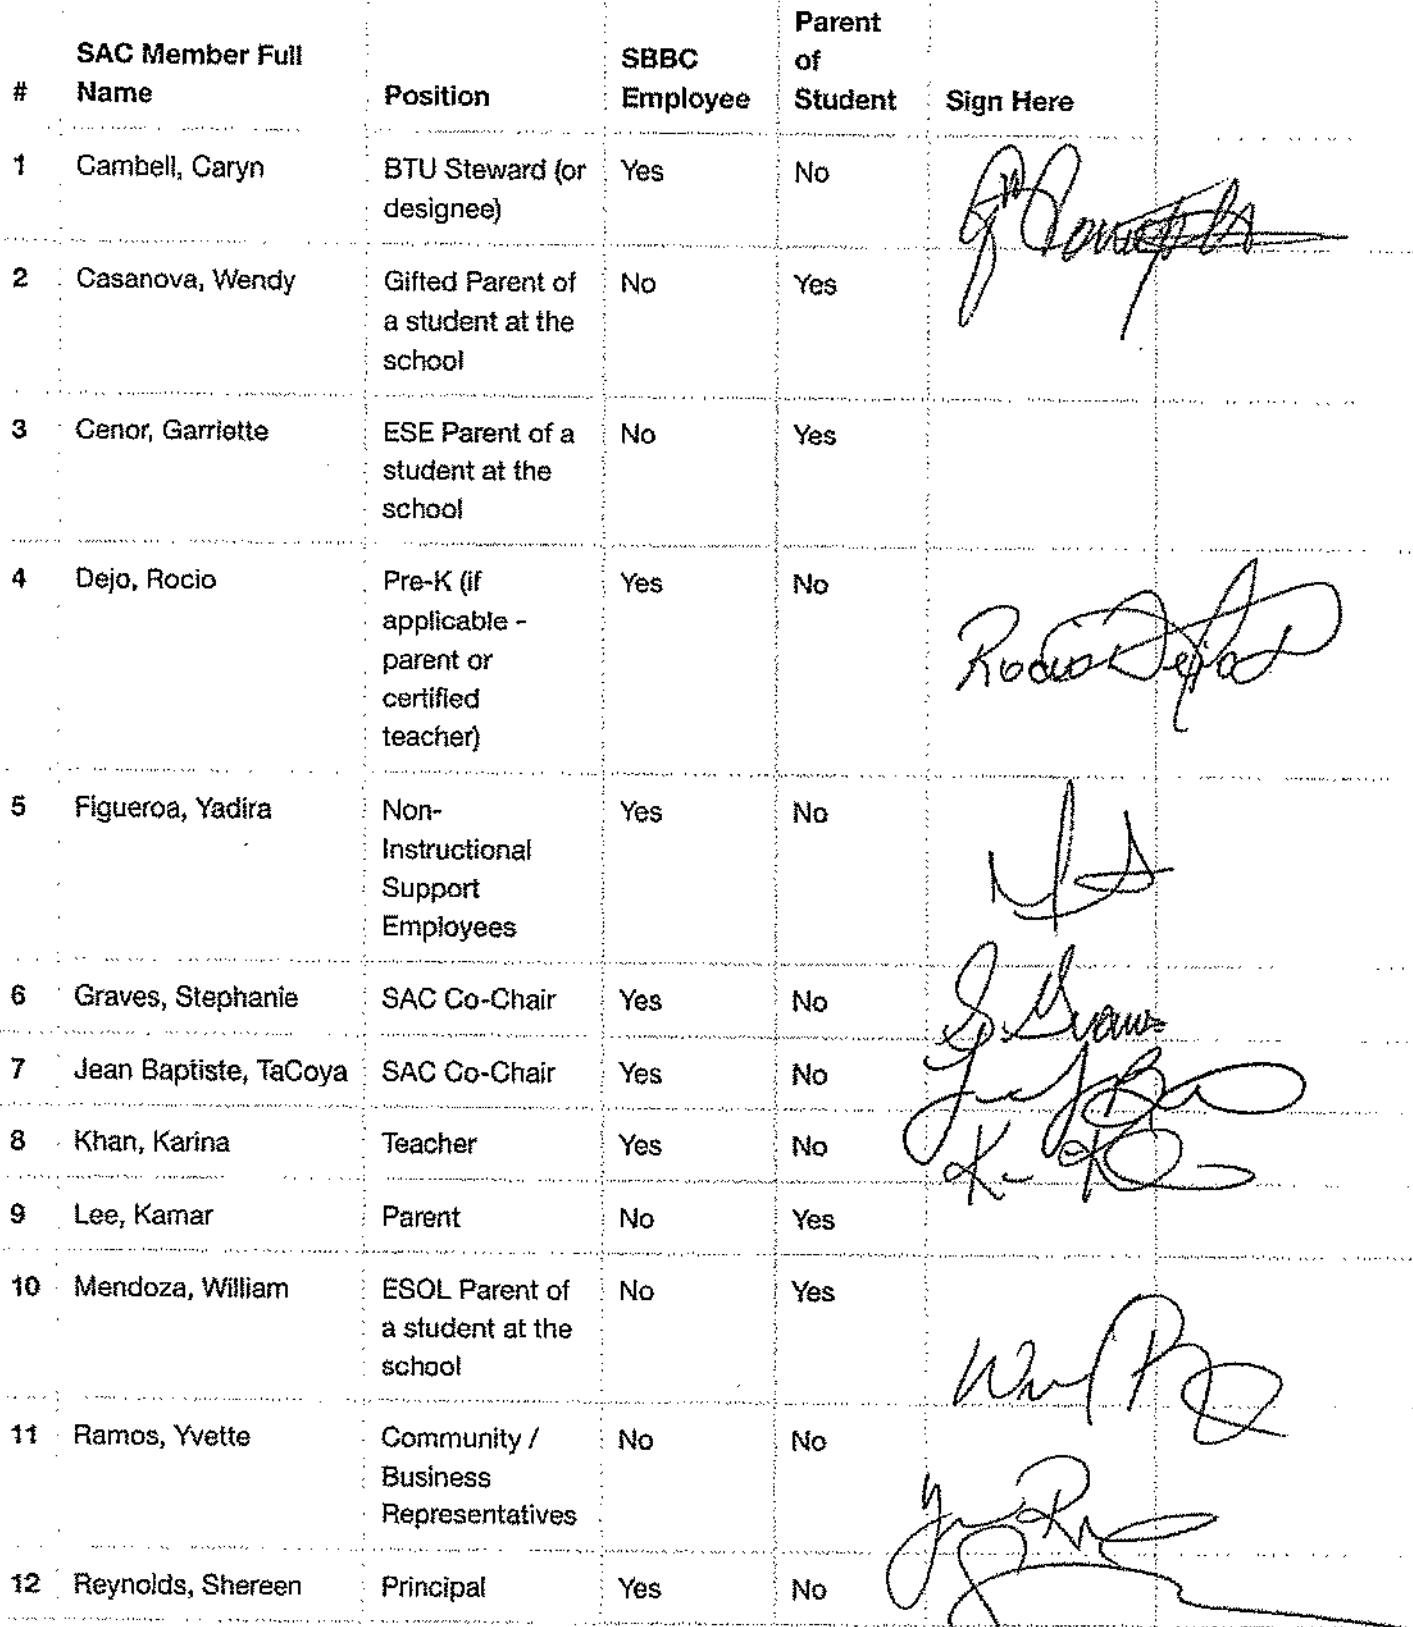 # SAC Member Full Name Position SBBC Employee Parent of Student Sign Here
1 Cambell, Caryn BTU Steward (or designee) Yes No
2 Casanova, Wendy Gifted Parent of a student at the school No Yes
3 Cenor, Garriette ESE Parent of a student at the school No Yes
4 Dejo, Rocio Pre-K (if applicable - parent or certified teacher) Yes No Rocio Dejo
5 Figueroa, Yadira Non-Instructional Support Employees Yes No
6 Graves, Stephanie SAC Co-Chair Yes No S. Graves
7 Jean Baptiste, TaCoya SAC Co-Chair Yes No
8 Khan, Karina Teacher Yes No
9 Lee, Kamar Parent No Yes
10 Mendoza, William ESOL Parent of a student at the school No Yes
11 Ramos, Yvette Community / Business Representatives No No
12 Reynolds, Shereen Principal Yes No